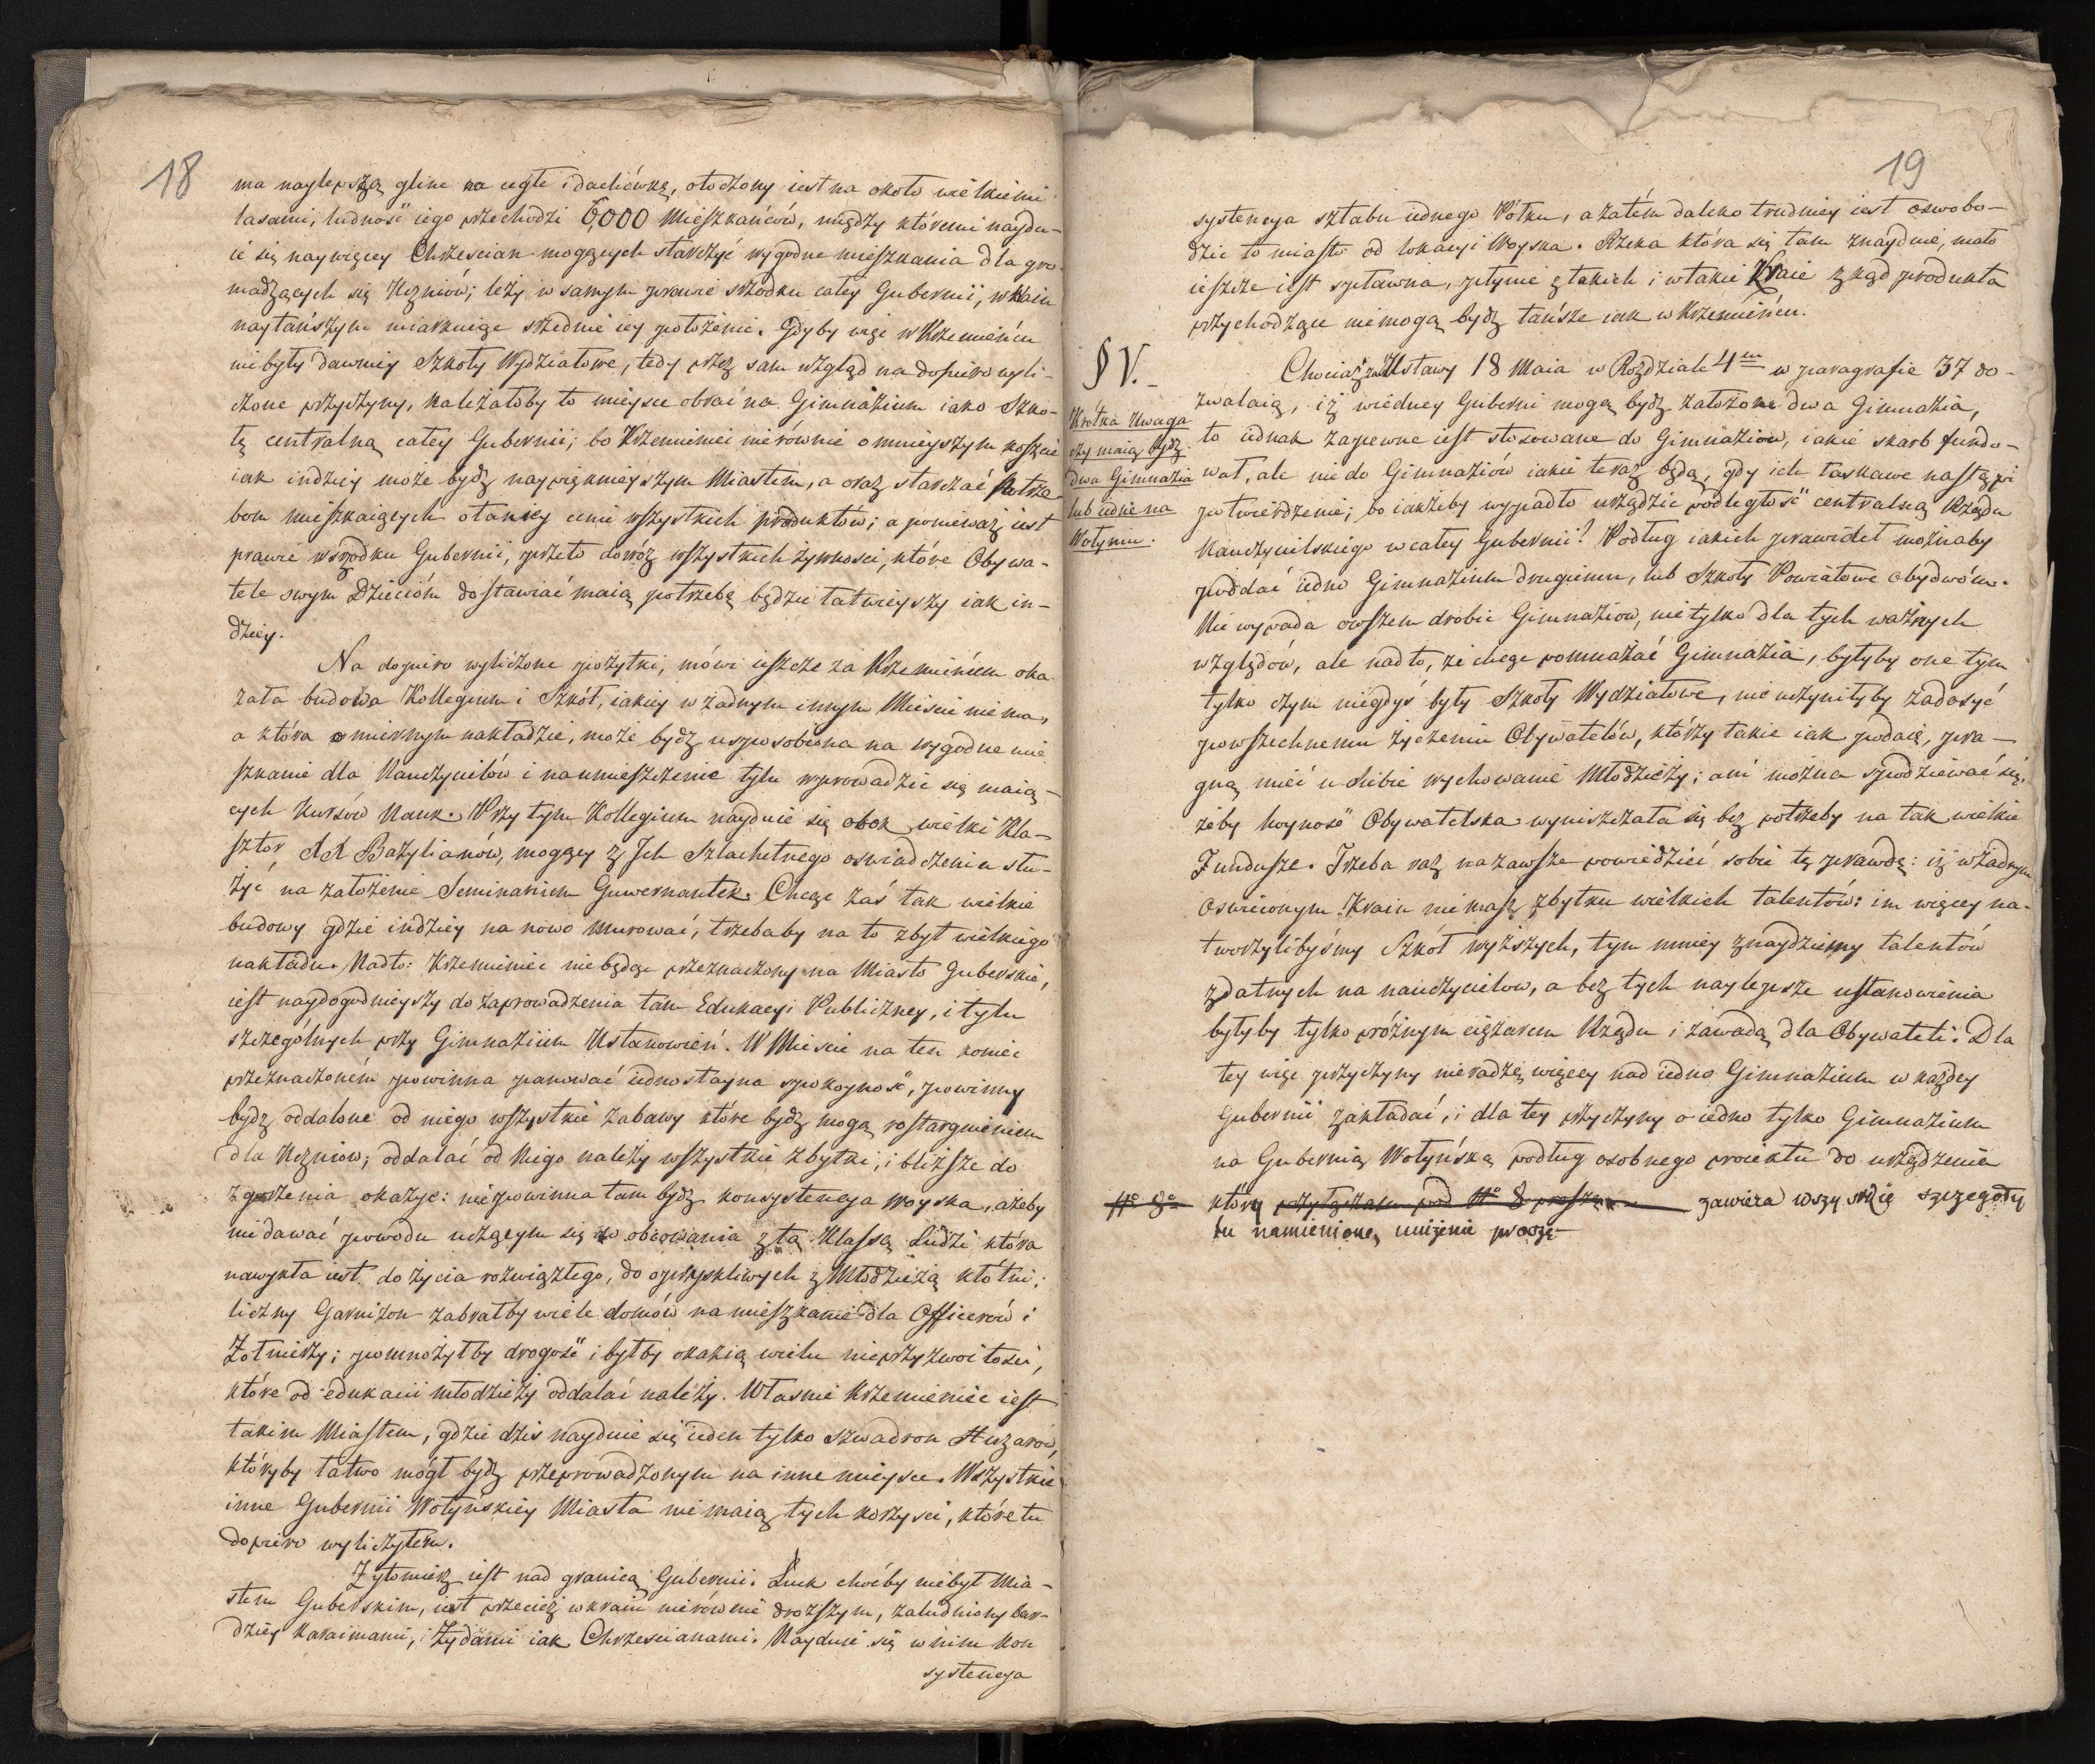 18
ma naylepszą glinę na cegłę i dachówkę, otoczony iest na około wielkiemi
lasami, ludność iego przechodzi 6,000 Mieszkańców, między któremi naydu-
ie się naywięcey Chrześcian mogących starczyć wygodne mieszkania dla gro-
madzących się Uczniów; leży w samym prawie srzodku całey Gubernii, w Kraiu
naytańszym miarkuiąc srzednie iey położenie. Gdyby więc w Krzemieńcu
niebyły dawniey Szkoły Wydziałowe, tedy przez sam wzgląd na dopiero wyli-
czone przyczyny, należałoby to mieysce obrać na Gimnazium iako Szko-
łę centralną całey Gubernii; bo Krzemieniec nierównie o mnieyszym koszcie
iak indziey może bydz naypięknieyszym Miastem, a oraz starczać potrze-
bom mieszkaiących o tanszey cenie wszystkich produktów; a ponieważ iest
prawie wsrzodku Gubernii, przeto dowóz wszystkich żywności, które Obywa-
tele swym Dzieciom dostawiać maią potrzebę będzie łatwieyszy iak in-
dziey.
Na dopiero wyliczone pożytki, mówi ieszcze za Krzemieńcem oka-
zała budowa Kollegium i Szkół, iakiey w żadnym innym Mieście niema,
a która o miernym nakładzie, może bydz usposobiona na wygodne mie-
szkanie dla Nauczycielów i na umieszczenie tylu wprowadzić się maią-
cych Kursów Nauk. Przy tym Kollegium nayduie się obok wielki Kla-
sztor XX Bazylianów, mogący z Ich Szlachetnego oświadczenia słu-
żyć na założenie Seminarium Guwernantek. Chcąc zaś tak wielkie
budowy gdzie indziey na nowo murować, trzebaby na to zbyt wielkiego
nakładu. Nadto: Krzemieniec niebędąc przeznaczony na Miasto Guberskie,
iest naydogodnieyszy do zaprowadzenia tam Edukacyi Publiczney, i tylu
szczególnych przy Gimnazium Ustanowień. W Mieście na ten koniec
przeznaczoném powinna panować iednostayna spokoyność, powinny
bydz oddalone od niego wszystkie zabawy które bydz mogą rostargnieniem
dla Uczniów; oddalać od niego należy wszystkie zbytki, i bliższe do
zgorszenia okazye: niepowinna tam bydz konsystencya woyska, ażeby
nie dawać powodu uczącym się do obcowania z tą Klassą Ludzi która
nawykła iest do życia rozwiązłego, do opryskliwych z Młodzieżą kłótni;
liczny Garnizon zabrałby wiele domów na mieszkanie dla Officerów i
Żołnierzy; pomnożyłby drogość i byłby okazią wielu nieprzyzwoitości,
które od edukacii młodzieży oddalać należy. Własnie Krzemieniec iest
takim Miastem, gdzie dziś nayduie się ieden tylko szwadron Huzarów,
któryby łatwo mógł bydz przeprowadzonym na inne mieysce. Wszystkie
inne Gubernii Wołyńskiey Miasta nie maią tych korzyści, które tu
dopiero wyliczyłem.
Żytomierz iest nad granicą Gubernii. Łuck choćby niebył Mia-
stem Guberskim, iest przecież w kraiu nierównie droższym, zaludniony bar-
dziey Karaimami, i Żydami iak Chrześcianami. Nayduie się w nim Kon
systencya
19
systencya sztabu iednego Półku, a zatém daleko trudniey iest oswobo-
dzić to miasto od lokacyi Woyska. Rzeka która się tam znayduie, mało
ieszcze iest spławna, płynie z takich i w takie Kraie z kąd produkta
przychodzące niemogą bydz tańsze iak w Krzemieńcu.
§ V.
Krótka Uwaga
czy maią bydz
dwa Gimnazia
lub iedne na
Wołyniu.
Chociaż zaś Ustawy 18 Maia w Rozdziale 4m w paragrafie 37 do-
zwalaią, iż wiedney Guberni mogą bydz założone dwa Gimnazia,
to iednak zapewne iest stosowane do Gimnaziow, iakie skarb fundo-
wał, ale nie do Gimnaziów iakie teraz będą, gdy ich łaskawe nastąpi
potwierdzenie; bo iakżeby wypadło urządzić podległość centralną Rządu
Nauczycielskiego w całey Gubernii? Podług iakich prawideł możnaby
poddać iedno Gimnazium drugiemu, lub Szkoły Powiatowe obydwóm.
Nie wypada owszem drobić Gimnaziow, nie tylko dla tych ważnych
względów, ale nadto, że chcąc pomnażać Gimnazia, byłyby one tym
tylko czym niegdyś były Szkoły Wydziałowe, nie uczyniłyby zadosyć
powszechnemu życzeniu Obywatelów, którzy takie iak podaię, pra-
gną mieć u siebie wychowanie Młodzieży; ani można spodziewać się,
żeby hoyność Obywatelska wyniszczała się bez potrzeby na tak wielkie
Fundusze. Trzeba raz na zawsze powiedzieć sobie tę prawdę: iż w żadnym
Oswieconym Kraiu nie masz zbytku wielkich talentów: im więcey na-
tworzylibyśmy Szkół wyższych, tym mniey znaydziemy talentów
zdatnych na nauczycielow, a bez tych naylepsze ustanowienia
byłyby tylko próżnym ciężarem Rządu i zawadą dla Obywateli. Dla
tey więc przyczyny nieradzę więcey nad iedno Gimnazium w każdey
Gubernii zakładać, i dla tey przyczyny o iedno tylko Gimnazium
na Gubernią Wołyńską podług osobnego proiektu do urządzenia
No 8o który przyłączam pod No 8 proszę zawiera wszystkie szczegóły
tu namienione, uniżenie proszę